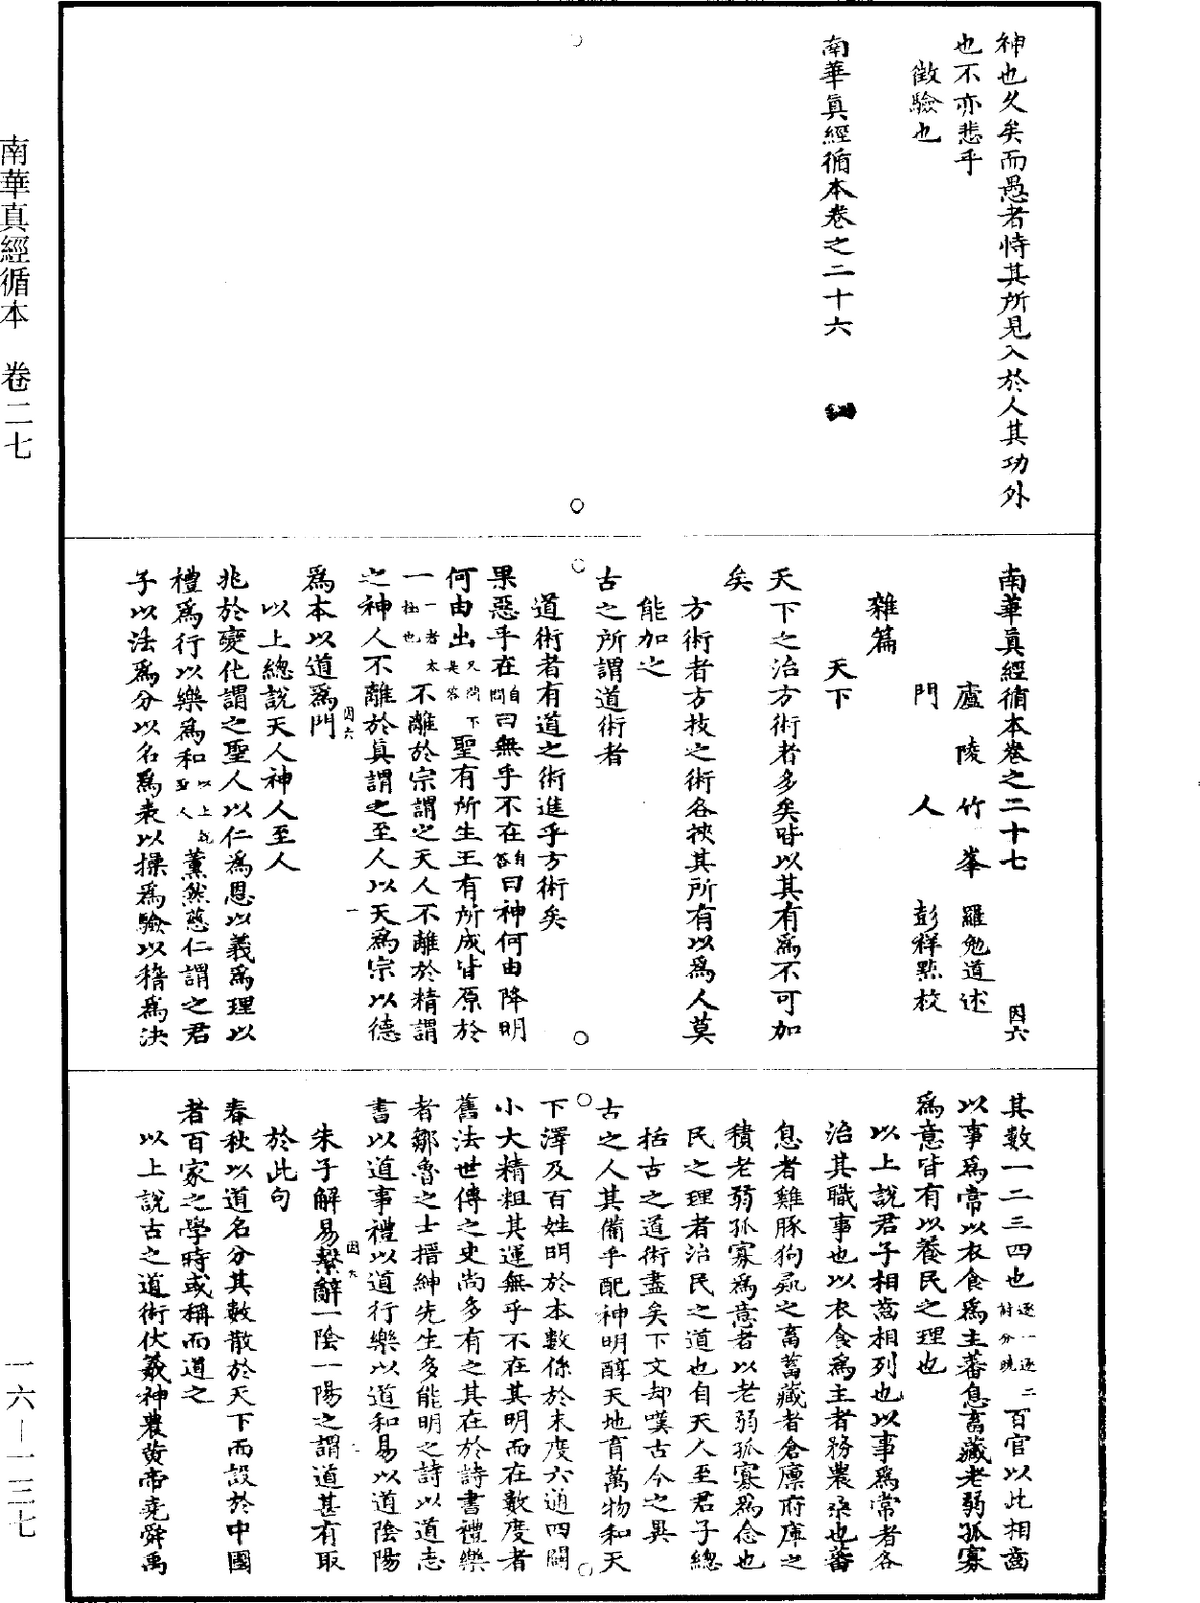 南華真經循本　卷二七
神也久矣而愚者恃其所見入於人其功外
也不亦悲乎
徵驗也
南華眞經循本卷之二十六
南華眞經循本卷之二十七　因六
廬陵竹峯羅勉道述
門人彭祥點校
雜篇
天下
天下之治方術者多矣皆以其有爲不可加
矣
方術者方技之術各挾其所有以爲人莫
能加之
古之所謂道術者
道術者有道之術進乎方術矣
果惡乎在自問曰無乎不在自答曰神何由降明
何由出又問下是答聖有所生王有所成皆原於
一一者太極也不離於宗謂之天人不離於精謂
之神人不離於眞謂之至人以天爲宗以德
因六　一
爲本以道爲門
以上總說天人神人至人
兆於變化謂之聖人以仁爲恩以義爲理以
禮爲行以樂爲和以上說聖人薰然慈仁謂之君
子以法爲分以名爲表以操爲驗以稽爲決
其數一二三四也逐一逐二討分曉百官以此相齒
以事爲常以衣食爲主蕃息畜藏老弱孤寡
爲意皆有以養民之理也
以上說君子相齒相列也以事爲常者各
治其職事也以衣食爲主者務農桑也蕃
息者雞豚狗彘之畜蓄藏者倉廩府庫之
積老弱孤寡爲意者以老弱孤寡爲念也
民之理者治民之道也自天人至君子總
括古之道術盡矣下文却嘆古今之異
古之人其備乎配神明醇天地育萬物和天
下澤及百姓明於本數係於末度六通四闢
小大精粗其運無乎不在其明而在數度者
舊法世傳之史尚多有之其在於詩書禮樂
者鄒魯之士搢紳先生多能明之詩以道志
書以道事禮以道行樂以道和易以道陰陽
因六
朱子解易繫辭一陰一陽之謂道甚有取
於此句
春秋以道名分其數散於天下而設於中國
者百家之學時或稱而道之
以上說古之道術伏羲神農黃帝堯舜禹
一六—一三七